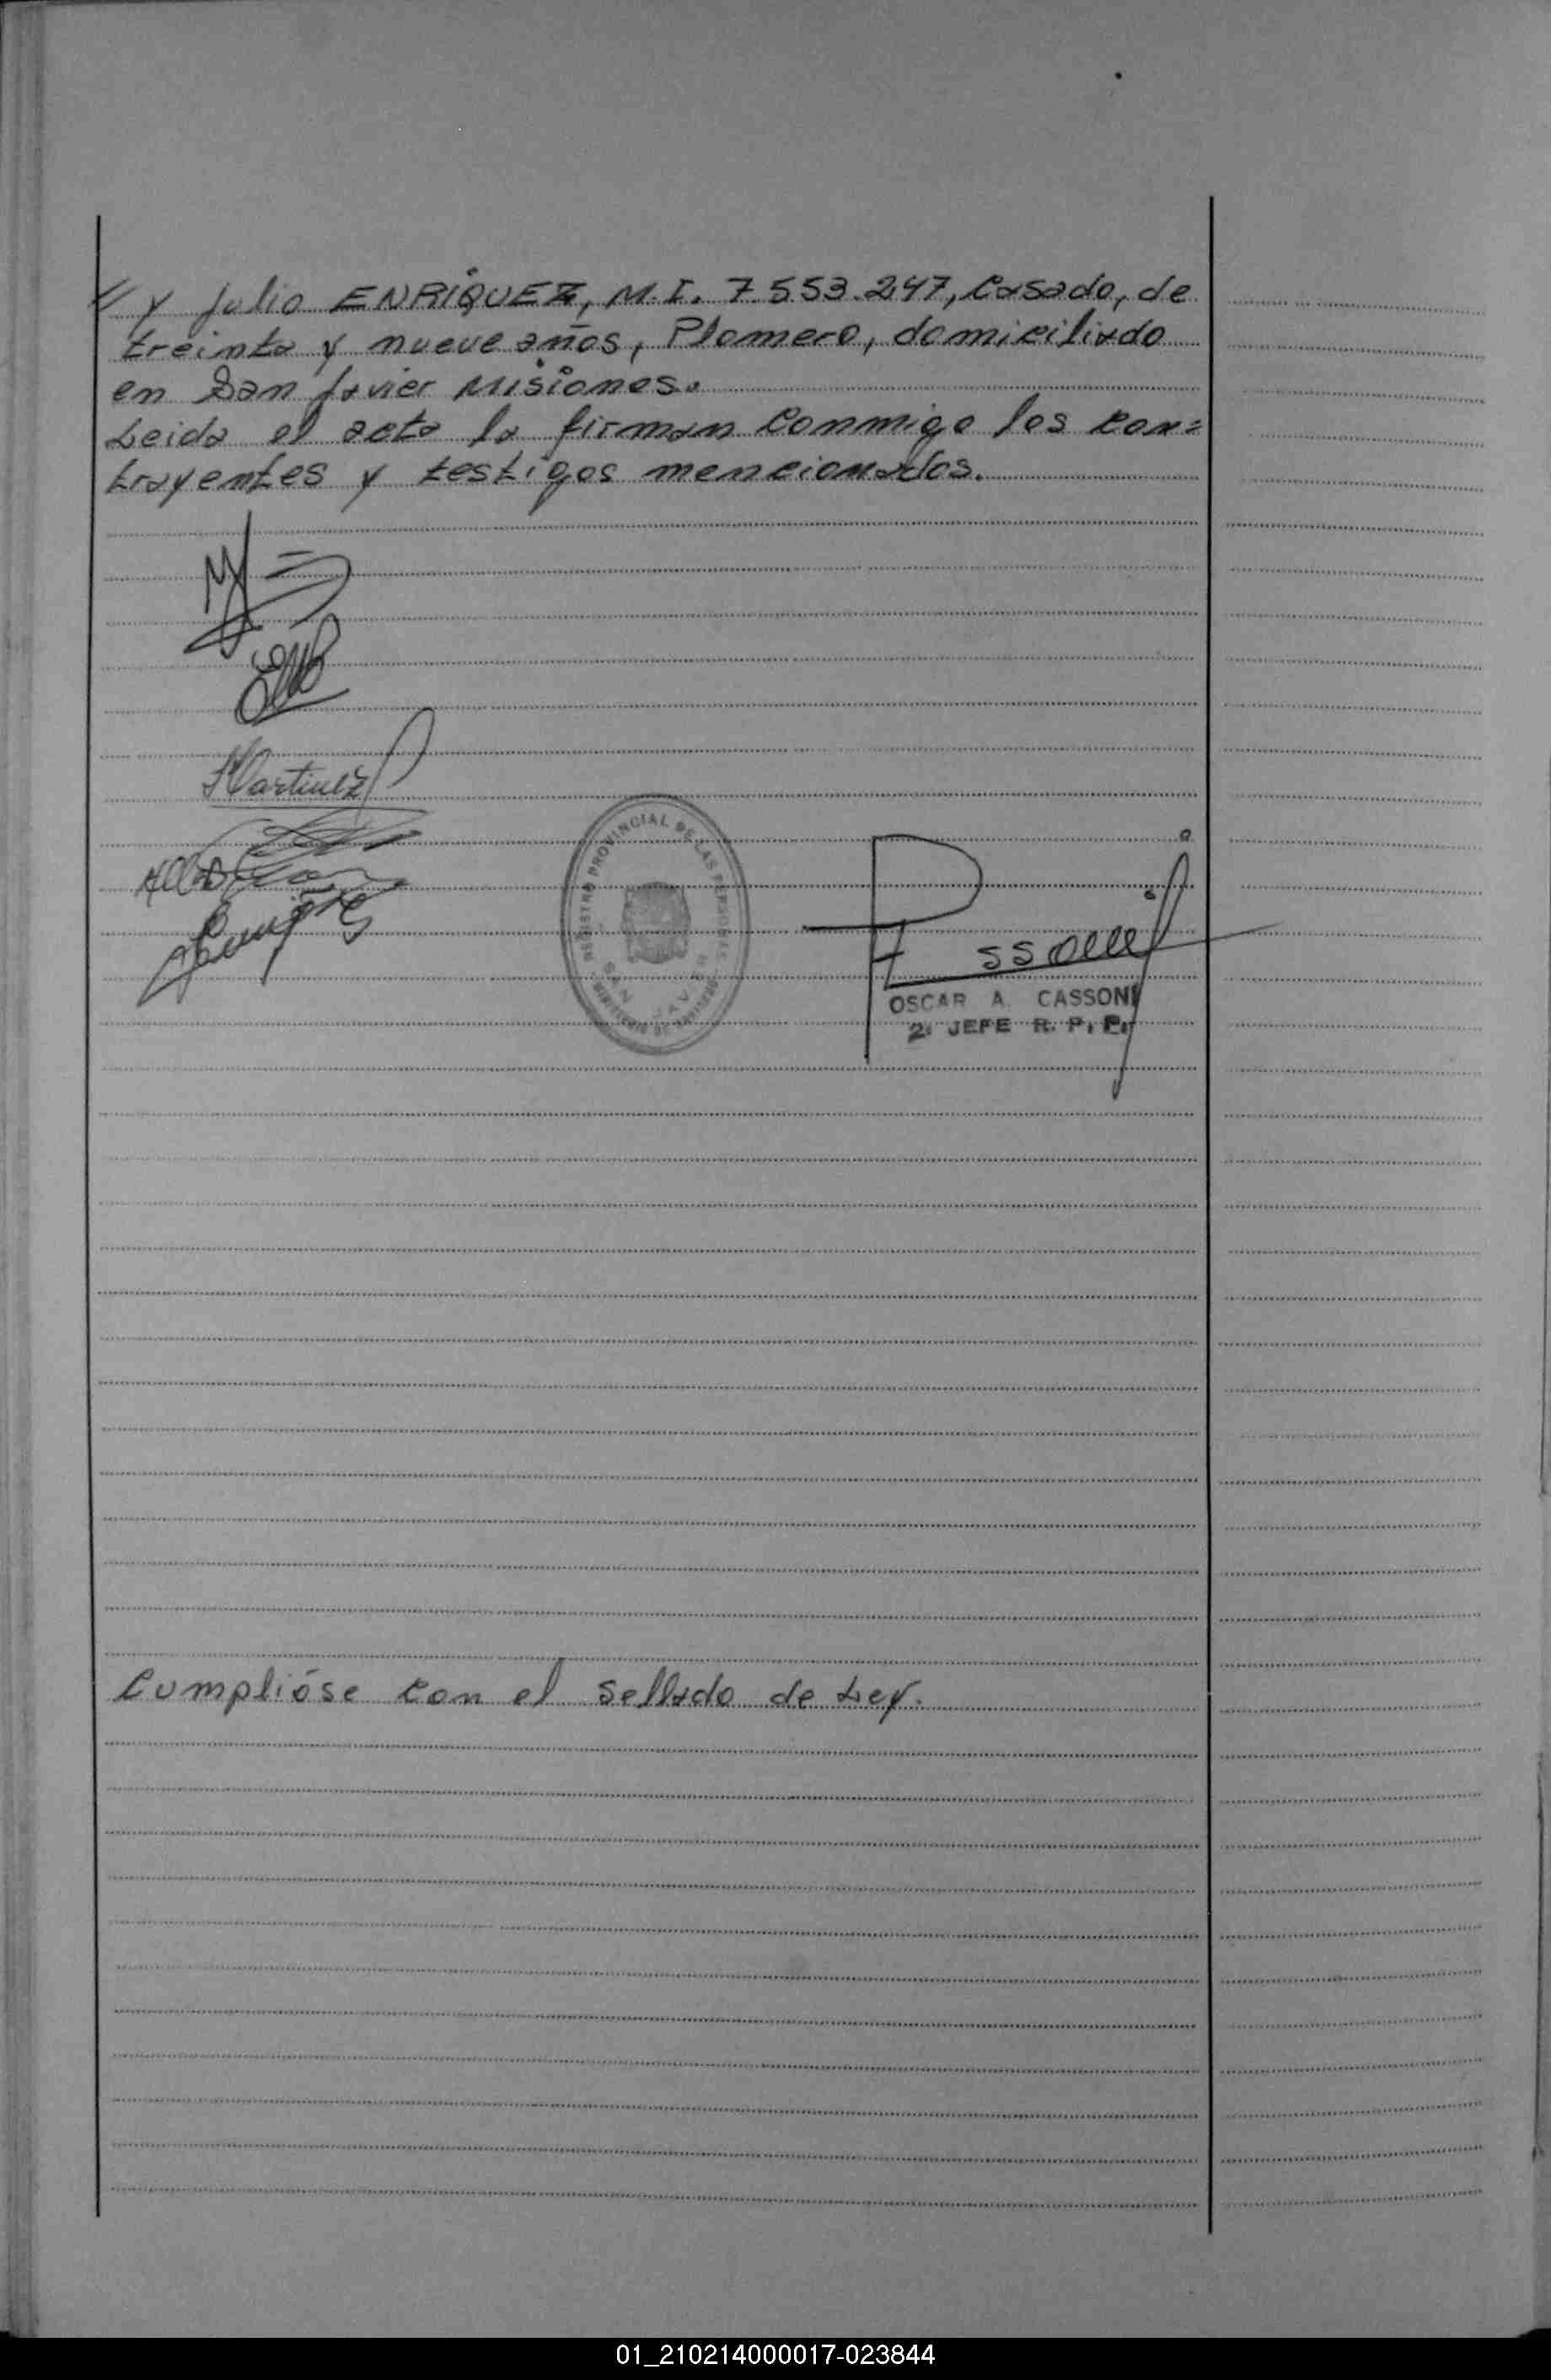 // y Julio ENRIQUEZ, M.I. 7.553.247, Casado, de
treinta y nueve años, Plomero, domiciliado
en San Javier Misiones.
Leida el acta la firman conmigo los con=
trayentes y testigos mencionados.
Martinez
REGISTRO PROVINCIAL DE LAS PERSONAS
SAN JAVIER
OSCAR A. CASSONI
2º JEFE R. P. P.
Cumplióse con el sellado de Ley.
01_210214000017-023844